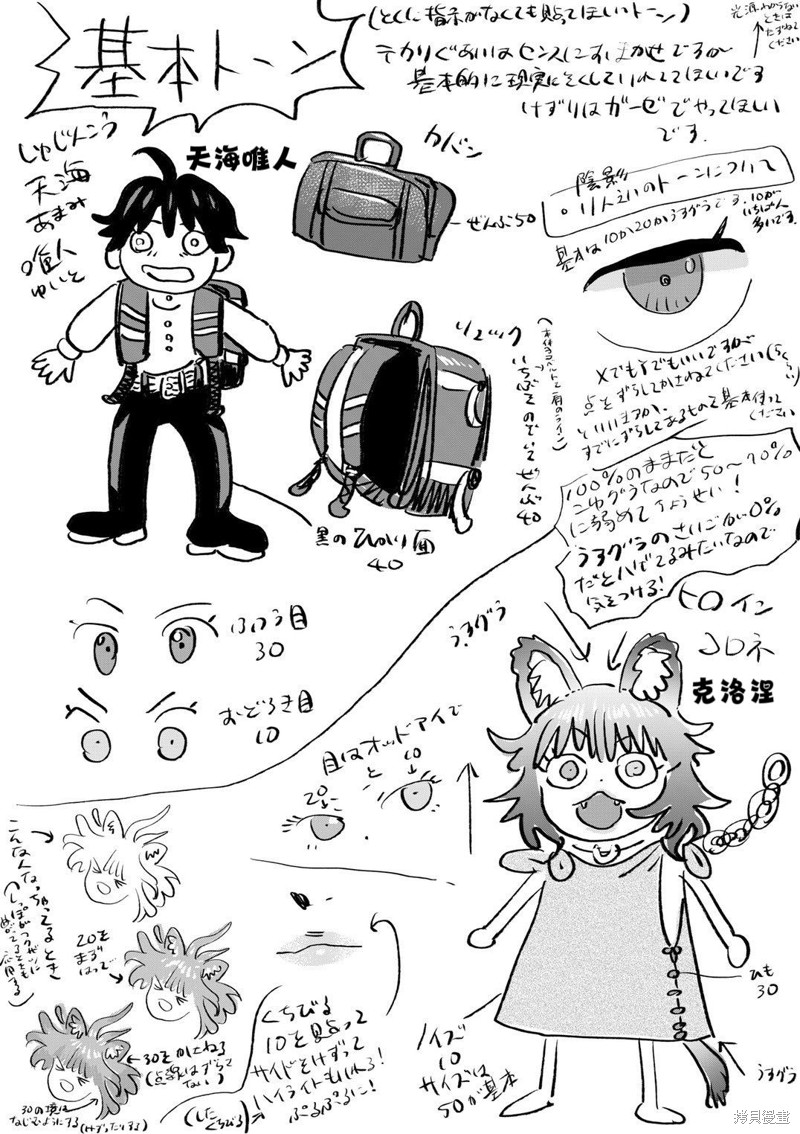 基本トーン
(とくに指示がなくても貼ってほしいトーン)
光源わからない
ときは
たずねて
ください
テカりぐあいはセンスにおまかせですが
基本的に現実にそくしていれてほしいです
けずりはガーゼでやってほしい
です.
しゅじんこう
天海
あまみ
唯人
ゆいと
天海唯人
カバン
ぜんぶ50
陰影
基本は10か20かうすグラです.10が
いちばん
多いです.
リュック
いちぶをのぞいてぜんぶ
40
黒のひかり面
40
点をずらしてかさねてください
といいますか、
すでにずらしてあるもので基本作って
ください
100%のままだと
こゆグラなので50〜70%
に弱めてちょうせい!
うすグラのさいごが0%
だとハゲてるみたいなので
気をつける!
ふつう目
30
おどろき目
10
うすグラ
ヒロイン
コロネ
克洛涅
目はオッドアイで
20
と
10
こんなんなっちゃってるとき
20を
まず
はって
30をかさねる
(点線はずらして
ない)
30の境は
なじむようにする(けずったりする)
くちびる
10を貼って
サイドをけずって
ハイライトもいれる!
ぷるぷるに!
(した
くちびる)
ノイズ
10
サイズは
50が基本
ひも
30
うすグラ
拷贝漫畫